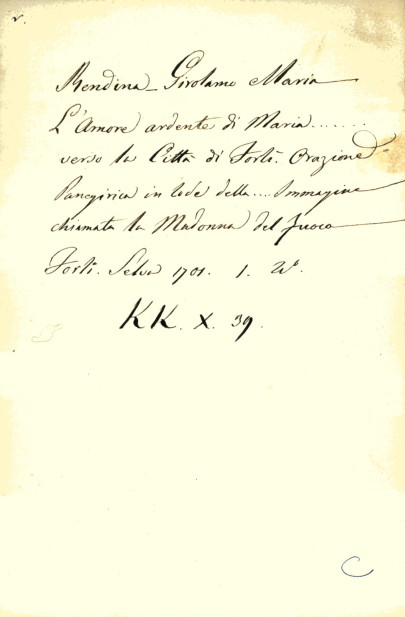 r.
Rendina Girolamo Maria
L'Amore ardente di Maria.......
verso la Città di Forlì. Orazione
Panegirica in lode della.... Immagine
chiamata la Madonna del fuoco
Forlì. Selva 1701. 1. V.º
KK. X. 39.
C